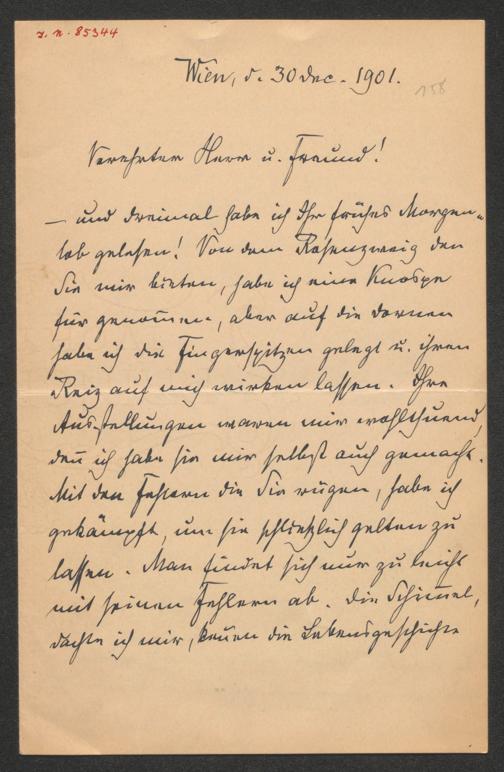 J. N. 85344
Wien, d. 30 Dec. 1901.
158
Verehrter Herr u. Freund!
— und dreimal habe ich Ihr frühes Morgen-
lob gelesen! Von dem Rosenzweig den
Sie mir bieten, habe ich eine Knospe
für genom̄en, aber auf die Dornen
habe ich die Fingerspitzen gelegt u. ihren
Reiz auf mich wirken lassen. Ihre
Ausstellungen waren mir wohlthuend,
den̄ ich habe sie mir selbst auch gemacht.
Mit den Fehlern die Sie rügen, habe ich
gekämpft, um sie schließlich gelten zu
lassen. Man findet sich nur zu leicht
mit seinen Fehlern ab. Die Schim̄el,
dachte ich mir, ken̄en die Lebensgeschichte